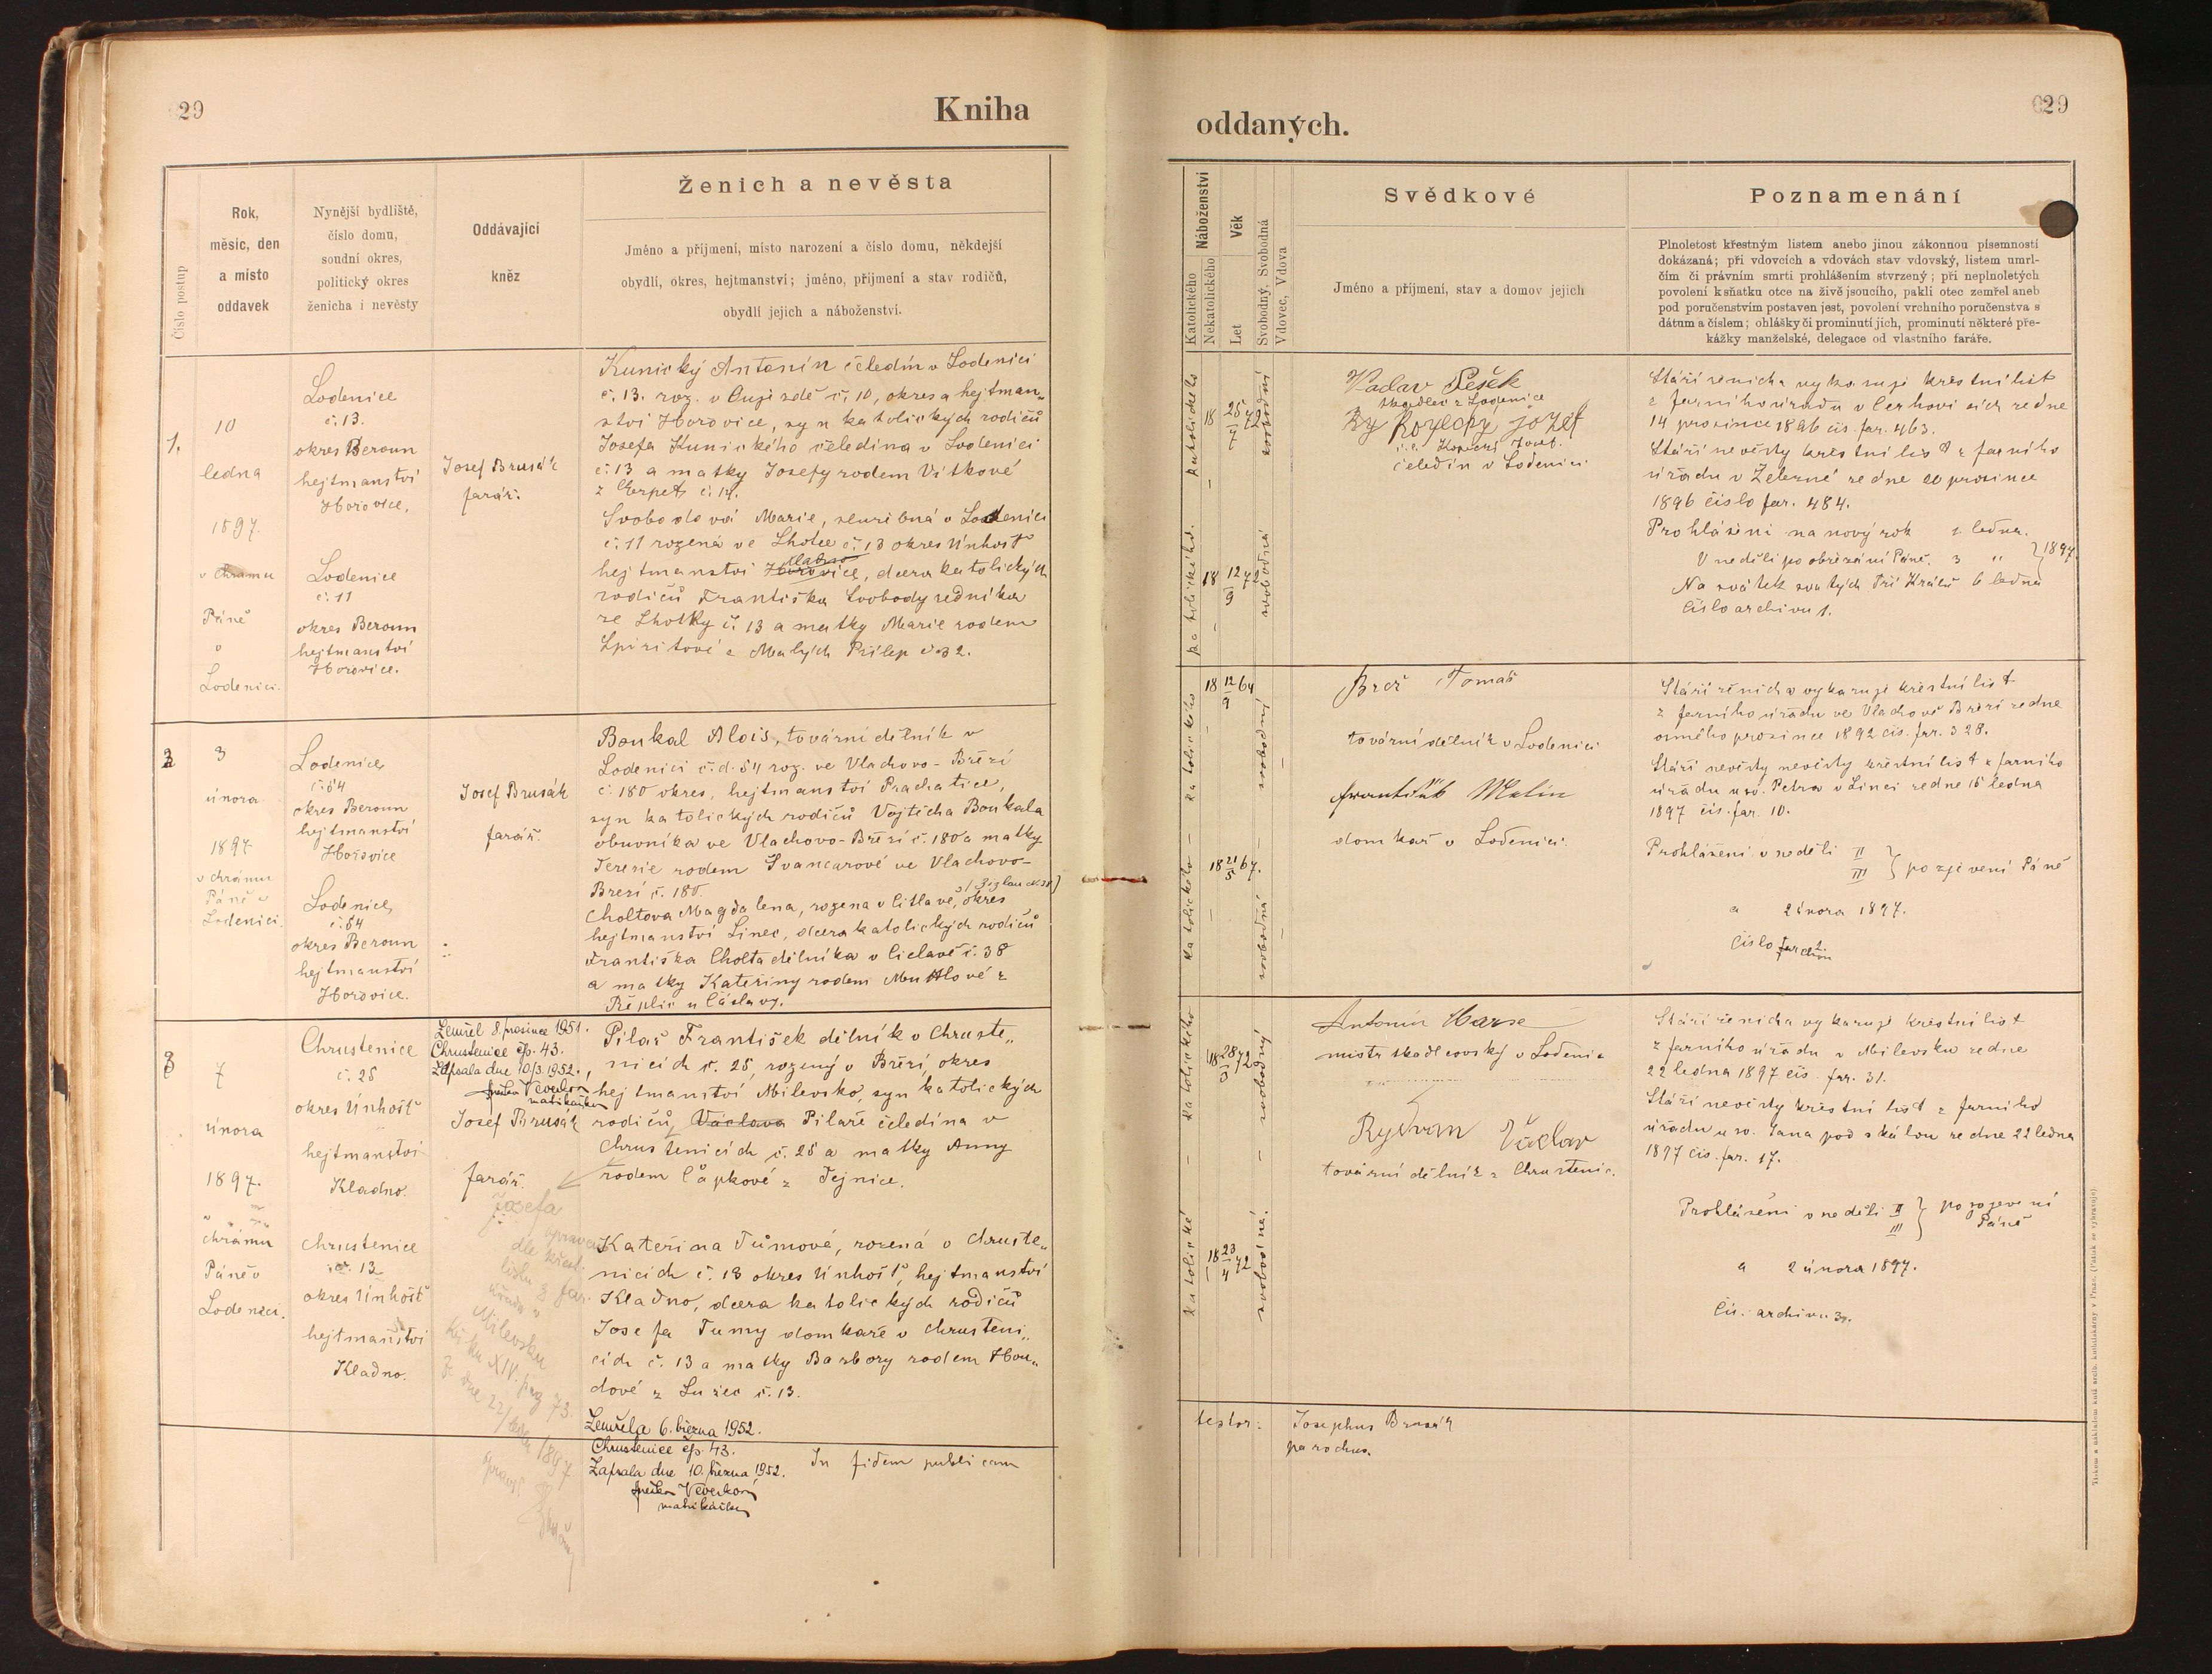 29
Kniha
Číslo postup
Rok,
měsíc, den
a místo
oddavek
Nynější bydliště,
číslo domu,
soudní okres,
politický okres
ženicha i nevěsty
Oddávající
kněz
Ženich a nevěsta
Jméno a příjmení, místo narození a číslo domu, někdejší
obydlí, okres, hejtmanství; jméno, příjmení a stav rodičů,
obydlí jejich a náboženství.
1.
10
ledna
1897.
v chrámu
Páně
v
Lodenici.
Lodenice
č. 13.
okres Beroun
hejtmanství
Hořovice,
Lodenice
č. 11
okres Beroun
hejtmanství
Hořovice.
Josef Brusák
farář.
Kunický Antonín čeledín v Lodenici
č. 13. roz. v Oujezdě č. 10, okres a hejtman„
ství Hořovice, syn katolických rodičů
Josefa Kunického čeledína v Lodenici
č. 13 a matky Josefy rodem Vítkové
z
Svobodová Marie, služebná v Lodenici
č. 11 rozená ve Lhotce č. 13 okres Únhošť
Kladno
hejtmanství Hořovice, dcera katolických
rodičů Františka Svobodyředníka
ze Lhotky č. 13 a matky Marie rodem
Spiritové z Malých Přílep č. 32.
2
3
února
1897
v chrámu
Páně v
Lodenici.
Lodenice,
č. 54
okres Beroun
hejtmanství
Hořovice
Lodenice,
č. 54
okres Beroun
hejtmanství
Hořovice.
Josef Brusák
farář.
Boukal Alois, tovární dělník v
Lodenici č.d. 54 roz. ve Vlachovo-Březí
č. 180 okres, hejtmanství Prachatice,
syn katolických rodičů Vojtěcha Boukala
obuvníka ve Vlachovo-Březí č. 180 a matky
Terezie rodem Švancarové ve Vlachovo-
Březí č. 180.
Choltova Magdalena, rozena v Citlavě, okres
hejtmanství Linec, dcera katolických rodičů
Františka Cholta dělníka v Liclavě č. 38
a matky Kateřiny rodem
u Čáslavy.
3
7
února
1897.
v
chrámu
Páně v
Lodenici.
Chrustenice
č. 25
okres Únhošť
hejtmanství
Kladno.
Chrustenice
č. 13
okres Únhošť
hejtmanství
Kladno.
Zemřel 8. prosince 1951.
Chrustenice čp. 43.
Zapsala dne 10/3. 1952.
matrikářka
Josef Brusák
farář.
Josefa
opraveno
dle křest.
listu z far.
úřadu v
Milevsku
XIV. pag 73.
Pilař František dělník v Chruste„
nicích č. 25, rozený v Březí, okres
hejtmanství Milevsko, syn katolických
rodičů, Václava Pilaře čeledína v
Chrustenicích č. 25 a matky Anny
rodem Čápkové z Tejnice.
Kateřina Tůmové, rozená v Chruste„
nicích č. 13 okres Únhošť, hejtmanství
Kladno, dcera katolických rodičů
Josefa Tumy domkaře v Chrusteni„
cích č. 13 a matky Barbory rodem Hou„
dové z Lužec č. 13.
Zemřela 6. března 1952.
Chrustenice čp. 43.
Zapsala dne 10. března 1952.
matrikářka
In fidem publicam
oddaných.
29
Náboženství
Katolického
Nekatolického
Věk
Let
Svobodný, Svobodná
Vdovec, Vdova
Svědkové
Jméno a příjmení, stav a domov jejich
Poznamenání
Plnoletost křestným listem anebo jinou zákonnou písemností
dokázaná; při vdovcích a vdovách stav vdovský, listem umrl-
čím či právním smrti prohlášením stvrzený; při neplnoletých
povolení k sňatku otce na živě jsoucího, pakli otec zemřel aneb
pod poručenstvím postaven jest, povolení vrchního poručenstva s
dátum a číslem; ohlášky či prominutí jich, prominutí některé pře-
kážky manželské, delegace od vlastního faráře.
katolického
18 25/7 72
svobodný
katolického.
18 12/9 72
svobodná
Václav Pešek
z Lodenice
Kopecký Josef.
čeledín v Lodenici
Stáří ženicha vykazuje křestní list
z farního úřadu v Cerhovicích ze dne
14 prosince 1896 čís. far. 463.
Stáří nevěsty křestní list z farního
úřadu v Železné ze dne 20 prosince
1896 číslo far. 484.
Prohlášeni na nový rok 1. ledna.
V neděli po obřezání Páně. 3 „
1897
Na svátek svatých Tří Králů 6 ledna
Číslo archivu 1.
katolického
18 12/9 64
svobodný
katolického
18 21/5 67.
svobodná
Tomáš
tovární dělník v Lodenici
František Malin
domkař v Lodenici.
Stáří ženicha vykazuje křestní list
z farního úřadu ve Vlachově Březí ze dne
osmého prosince 1892 čís. far. 328.
Stáří nevěsty nevěsty křestní list z farního
úřadu u sv. Petra v Linci ze dne 15 ledna
1897 čís. far. 10.
Prohlášeni v neděli II
III } po zjevení Páně
a 2 února 1897.
Číslo
katolického
18 28/3 72
svobodný
katolické
18 23/4 72
svobodné.
Antonín
mistr v Lodenic
Rydvan Václav
tovární dělník z Chrustenic.
Stáří ženicha vykazuje křestní list
z farního úřadu v Milevsku ze dne
22 ledna 1897 čís. far. 31.
Stáří nevěsty křestní list z farního
úřadu u sv. Jana pod skálou ze dne 22 ledna
1897 čís. far. 17.
Prohlášeni v neděli II
III } po zjevení
Páně
a 2 února 1897.
Čís. archivu 3.
testor: Josephus Brusák
parochus.